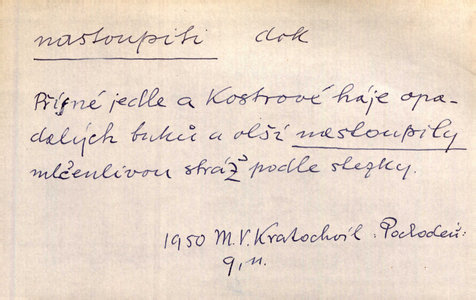 nastoupiti dok
Přísné jedle a kostrové háje opa-
dalých buků a olší nastoupily
mlčenlivou stráž podle stezky.
1950 M.V. Kratochvíl: Pochodeň:
9, n.